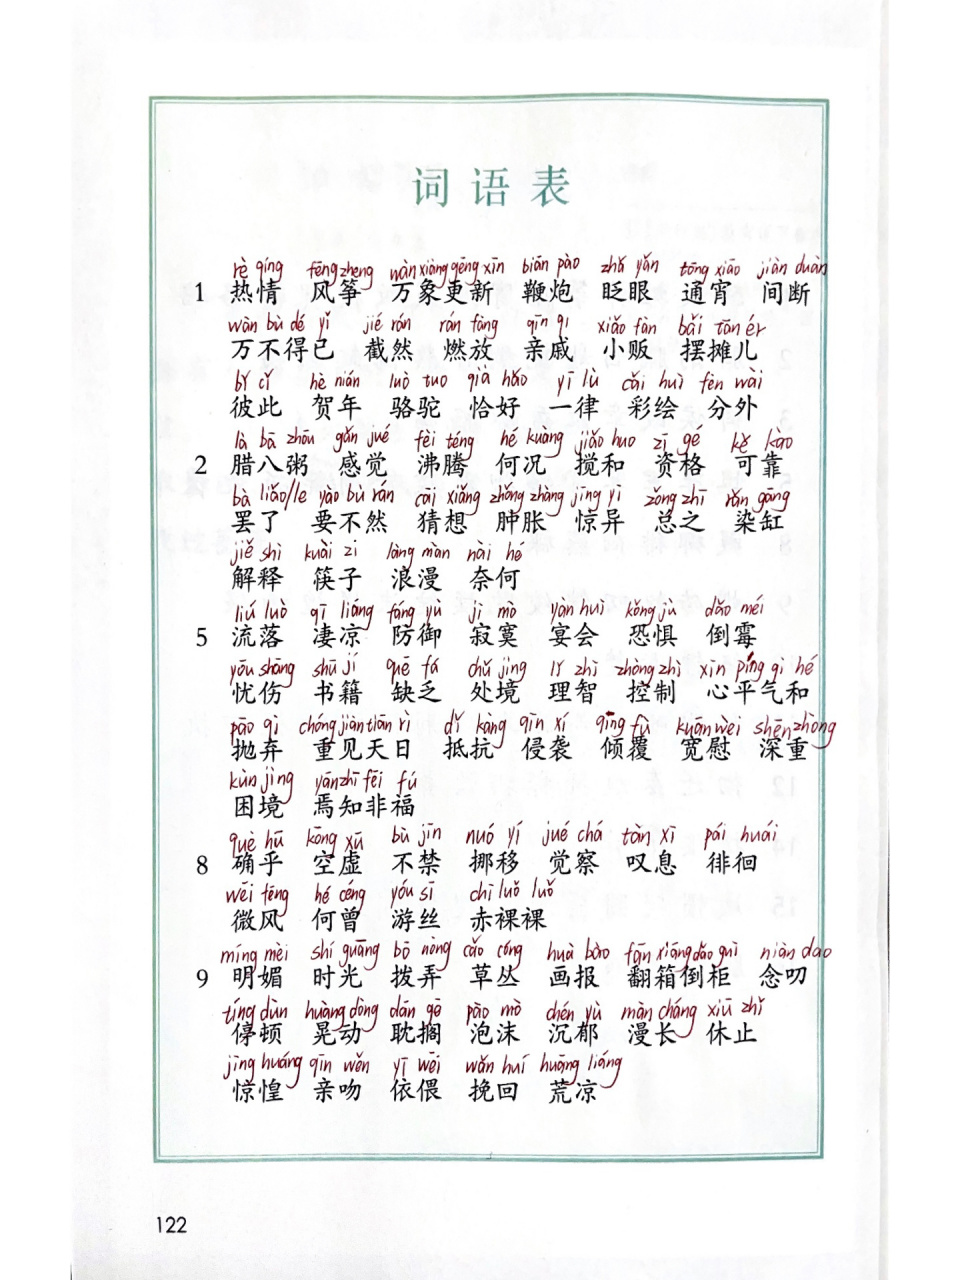 词语表
rè qíng fēng zheng wàn xiàng gēng xīn biān pào zhǎ yǎn tōng xiāo jiàn duàn
1 热情 风筝 万象更新 鞭炮 眨眼 通宵 间断
wàn bù dé yǐ jié rán rán fàng qīn qi xiǎo fàn bǎi tān ér
万不得已 截然 燃放 亲戚 小贩 摆摊儿
bǐ cǐ hè nián luò tuo qià hǎo yī lǜ cǎi huì fèn wài
彼此 贺年 骆驼 恰好 一律 彩绘 分外
là bā zhōu gǎn jué fèi téng hé kuàng jiǎo huo zī gé kě kào
2 腊八粥 感觉 沸腾 何况 搅和 资格 可靠
bà liǎo/le yào bù rán cāi xiǎng zhǒng zhàng jīng yì zǒng zhī rǎn gāng
罢了 要不然 猜想 肿胀 惊异 总之 染缸
jiě shì kuài zi làng màn nài hé
解释 筷子 浪漫 奈何
liú luò qī liáng fáng yù jì mò yàn huì kǒng jù dǎo méi
5 流落 凄凉 防御 寂寞 宴会 恐惧 倒霉
yōu shāng shū jí quē fá chǔ jìng lǐ zhì kòng zhì xīn píng qì hé
忧伤 书籍 缺乏 处境 理智 控制 心平气和
pāo qì chóng jiàn tiān rì dǐ kàng qīn xí qīng fù kuān wèi shēn zhòng
抛弃 重见天日 抵抗 侵袭 倾覆 宽慰 深重
kùn jìng yān zhī fēi fú
困境 焉知非福
què hū kōng xū bù jīn nuó yí jué chá tàn xī pái huái
8 确乎 空虚 不禁 挪移 觉察 叹息 徘徊
wēi fēng hé céng yóu sī chì luǒ luǒ
微风 何曾 游丝 赤裸裸
míng mèi shí guāng bō nòng cǎo cóng huà bào fān xiāng dǎo guì niàn dao
9 明媚 时光 拨弄 草丛 画报 翻箱倒柜 念叨
tíng dùn huàng dòng dān gē pào mò chén yù màn cháng xiū zhǐ
停顿 晃动 耽搁 泡沫 沉郁 漫长 休止
jīng huáng qīn wěn yī wēi wǎn huí huāng liáng
惊惶 亲吻 依偎 挽回 荒凉
122